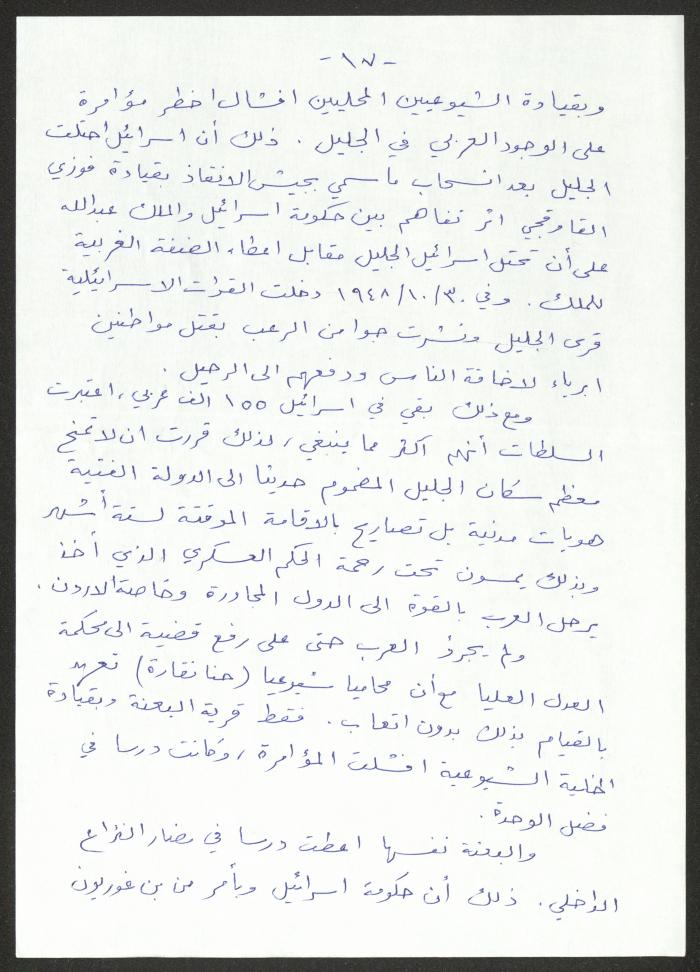 -١٧-
وبقيادة الشيوعيين المحليين افشال اخطر مؤامرة
على الوجود العربي في الجليل . ذلك أن اسرائيل احتلت
الجليل بعد انسحاب ما سمي بجيش الانقاذ بقيادة فوزي
القاوقجي اثر تفاهم بين حكومة اسرائيل والملك عبدالله
على أن تحتل اسرائيل الجليل مقابل اعطاء الضفة الغربية
للملك . وفي ١٩٤٨/١٠/٣٠ دخلت القوات الاسرائيلية
قرى الجليل ونشرت جوا من الرعب بقتل مواطنين
ابرياء لاخافة الناس ودفعهم الى الرحيل .
ومع ذلك بقي في اسرائيل ١٥٥ الف عربي ، اعتبرت
السلطات أنهم اكثر مما ينبغي ، لذلك قررت ان لا تمنح
معظم سكان الجليل المضموم حديثا الى الدولة الفتية
هويات مدنية بل تصاريح بالاقامة الموقتة لستة أشهر
وبذلك يمسون تحت رحمة الحكم العسكري الذي أخذ
يرحل العرب بالقوة الى الدول المجاورة وخاصة الاردن .
ولم يجرؤ العرب حتى على رفع قضية الى محكمة
العدل العليا مع أن محاميا شيوعيا (حنا نقارة) تعهد
بالقيام بذلك بدون اتعاب . فقط قرية البعنة وبقيادة
الخلية الشيوعية افشلت المؤامرة ، وكانت درسا في
فضل الوحدة .
والبعنة نفسها اعطت درسا في مضار النزاع
الداخلي . ذلك أن حكومة اسرائيل وبأمر من بن غوريون